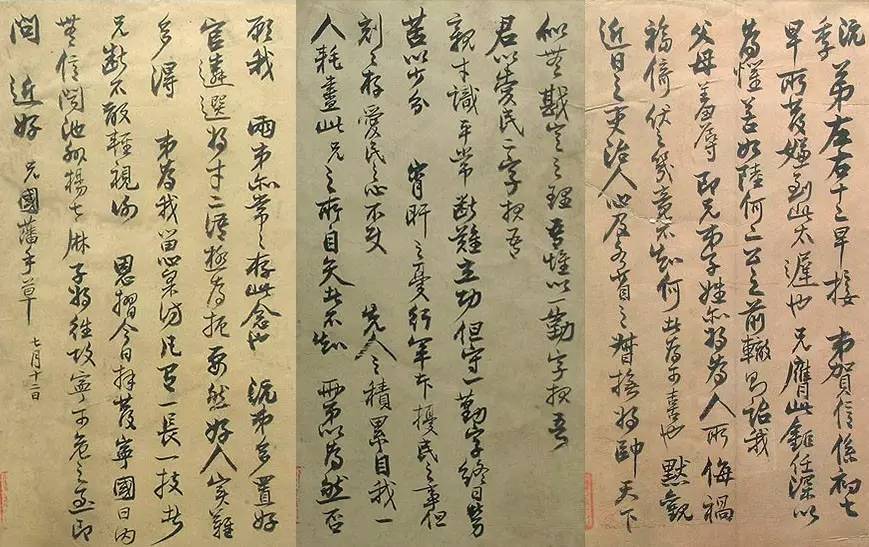 沅季弟左右十二早接 弟賀信係初七
早所發嫌到此太遲也 兄膺此鉅任深以
為懼若如陸何二公之前轍則詒我
父母羞辱即兄弟子姪亦將為人所侮禍
福倚伏之幾竟不知何者為可喜也 默觀
近日之吏治人心及各省之督撫將帥天下
似無戡定之理吾惟以一勤字報吾
君以愛民二字報吾
親才識平常斷難立功但守一勤字終日勞
苦以少分 宵旰之憂行軍本擾民之事但
刻々存愛民之心不使 先人之積累自我一
人耗盡此兄之所自矢者不知 兩弟以為然否
願我 兩弟亦常々存此念也 沅弟多置好
官遴選將才二語極為扼要然好人實難
多得 弟為我留心采訪凡有一長一技者
兄斷不敢輕視謝 恩摺今日拜發寧國日內
無信聞池州楊七麻子將往攻寧可危之至即
問近好 兄國藩手草 七月十二日